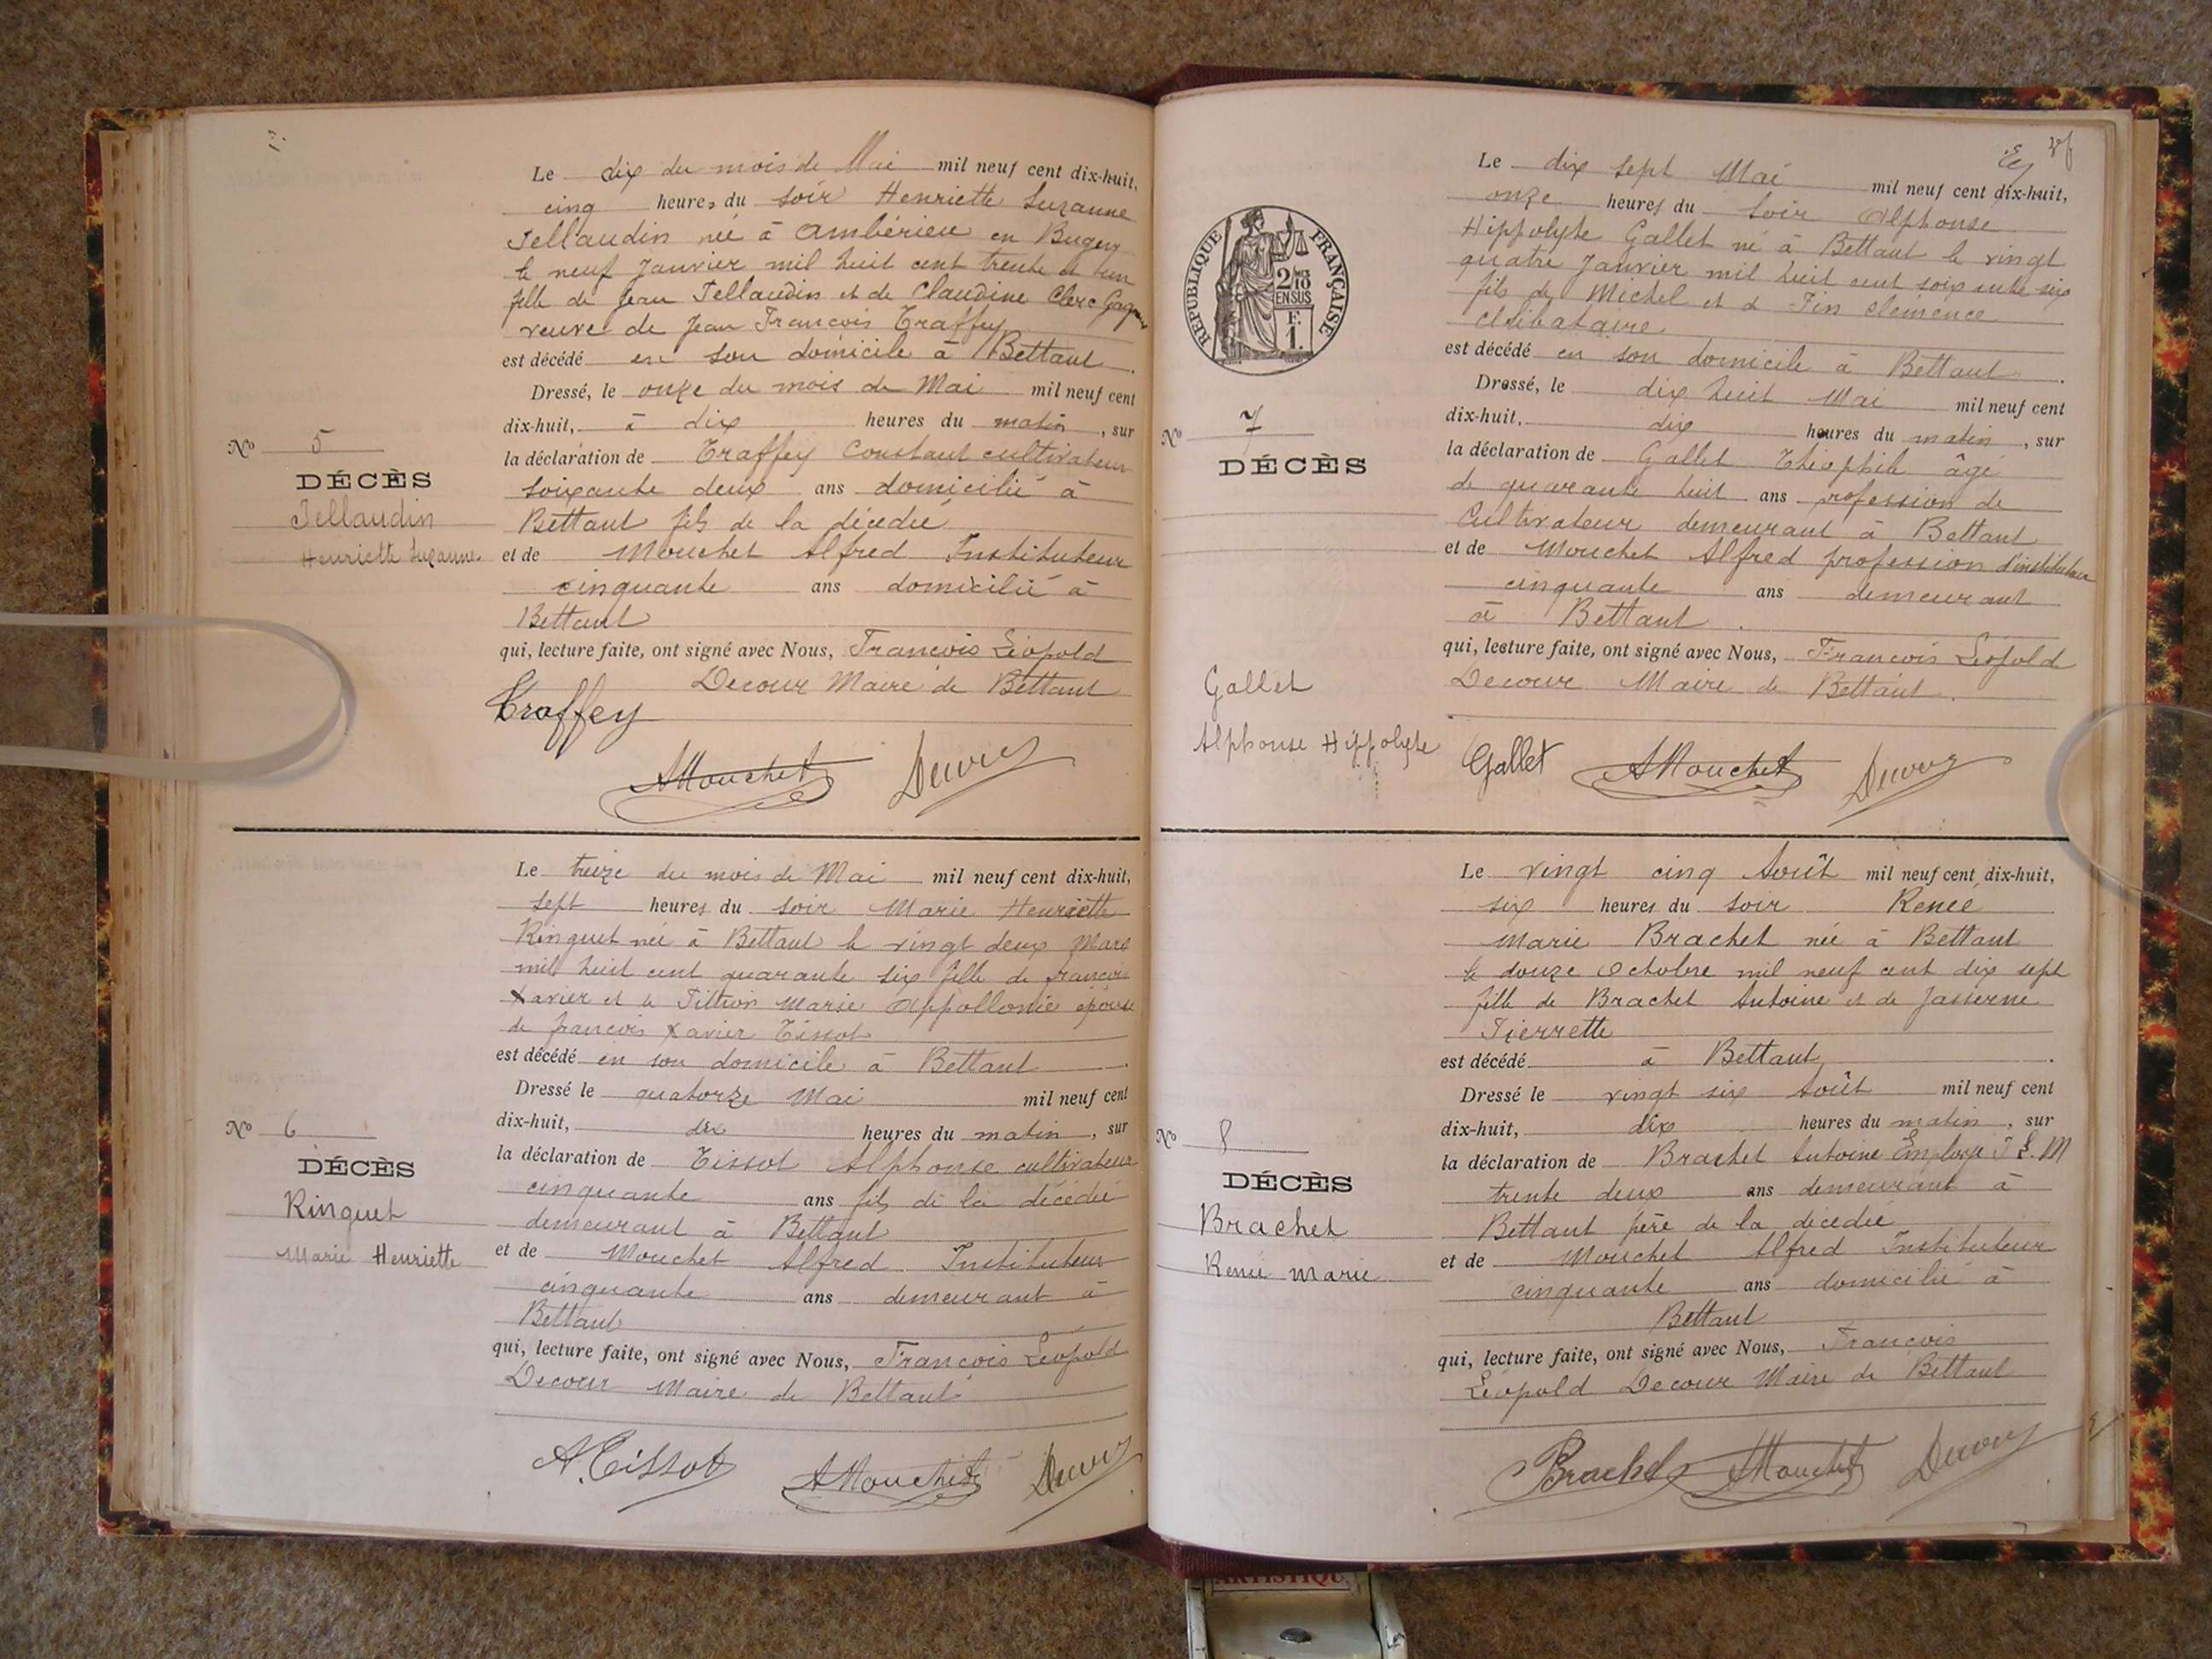 Le dix du mois de Mai mil neuf cent dix-huit,
cinq heures du soir Henriette Suzanne
Tellaudin née à Ambérieu en Bugey
le neuf Janvier mil huit cent trente et un
fille de Jean Tellaudin et de Claudine Clerc
veuve de Jean François Traffey
est décédé en son domicile à Bettant.
Dressé, le onze du mois de Mai mil neuf cent
dix-huit, à dix heures du matin, sur
la déclaration de Traffey Constant cultivateur
soixante deux ans domicilié à
Bettant fils de la décédée
et de Mouchet Alfred Instituteur
cinquante ans domicilié à
Bettant
qui, lecture faite, ont signé avec Nous, François Léopold
Decour Maire de Bettant
Nº 5
DÉCÈS
Tellaudin
Henriette Suzanne
Traffey
AMouchet Decour
Le treize du mois de Mai mil neuf cent dix-huit,
sept heures du soir Marie Henriette
Ringuet née à Bettant le vingt deux Mars
mil huit cent quarante six fille de françois
Xavier et de Marie Appollonie épouse
de françois Xavier Tissot
est décédé en son domicile à Bettant.
Dressé le quatorze Mai mil neuf cent
dix-huit, dix heures du matin, sur
la déclaration de Tissot Alphonse cultivateur
cinquante ans fils de la décédée
demeurant à Bettant
et de Mouchet Alfred Instituteur
cinquante ans demeurant à
Bettant
qui, lecture faite, ont signé avec Nous, François Léopold
Decour Maire de Bettant
Nº 6
DÉCÈS
Ringuet
Marie Henriette
A. Tissot AMouchet Decour
Le dix sept Mai mil neuf cent dix-huit,
onze heures du soir Alphonse
Hippolyte Gallet né à Bettant le vingt
quatre Janvier mil huit cent soixante six
fils de Michel et de Fin clémence
célibataire
est décédé en son domicile à Bettant.
Dressé, le dix huit Mai mil neuf cent
dix-huit, dix heures du matin, sur
la déclaration de Gallet Théophile âgé
de quarante huit ans profession de
Cultivateur demeurant à Bettant
et de Mouchet Alfred profession d'instituteur
cinquante ans demeurant
à Bettant.
qui, lecture faite, ont signé avec Nous, François Léopold
Decour Maire de Bettant.
RÉPUBLIQUE FRANÇAISE
2/10
EN SUS
F.
1.
Nº 7
DÉCÈS
Gallet
Alphonse Hippolyte
Gallet AMouchet Decour
Le vingt cinq Août mil neuf cent dix-huit,
six heures du soir Renée
Marie Brachet née à Bettant
le douze Octobre mil neuf cent dix sept
fille de Brachet Antoine et de Jasserme
Pierrette
est décédé à Bettant.
Dressé le vingt six Août mil neuf cent
dix-huit, dix heures du matin, sur
la déclaration de Brachet Antoine Employé
trente deux ans demeurant à
Bettant père de la décédée
et de Mouchet Alfred Instituteur
cinquante ans domicilié à
Bettant
qui, lecture faite, ont signé avec Nous, François
Léopold Decour Maire de Bettant
Nº 8
DÉCÈS
Brachet
Renée Marie
Brachet AMouchet Decour